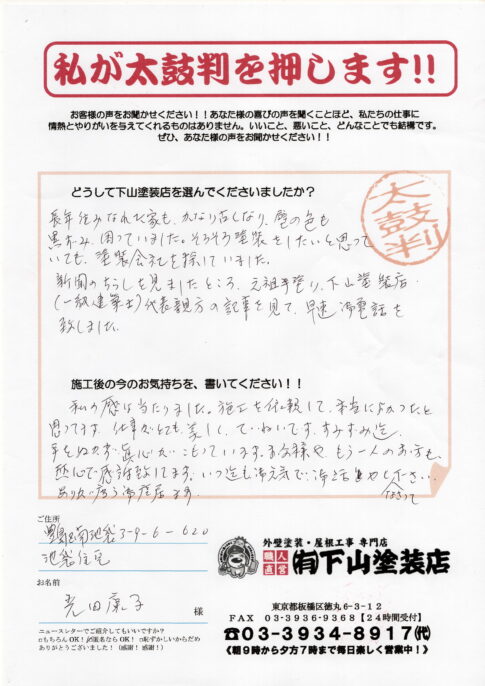 私が太鼓判を押します!!
お客様の声をお聞かせください！！あなた様の喜びの声を聞くことほど、私たちの仕事に
情熱とやりがいを与えてくれるものはありません。いいこと、悪いこと、どんなことでも結構です。
ぜひ、あなた様の声をお聞かせください！！
どうして下山塗装店を選んでくださいましたか？
太鼓判
長年住みなれた家も、かなり古くなり、壁の色も
黒ずみ、困っていました。そろそろ塗装をしたいと思って
いても、塗装会社を探していました。
新聞のちらしを見ましたところ、元祖手塗り、下山塗装店
(一級建築士)代表親方の記事を見て、早速お電話を
致しました。
施工後の今のお気持ちを、書いてください！！
私の感は当たりました。施工を依頼して、本当によかったと
思ってます。仕事がとても美しく、ていねいです、すみずみ迄、
手をぬかず、真心がこもっています。お父様や、もう一人の方も、
熱心で感謝致してます。いつ迄もお元気で
ご住所
豊島区南池袋3-9-6-620
池袋住宅
お名前
様
ニュースレターでご紹介してもいいですか？
□もちろんOK！ □匿名ならOK！ □恥ずかしいからだめ
ありがとうございました！（感謝！感謝！）
外壁塗装・屋根工事 専門店
職人直営 (有)下山塗装店
東京都板橋区徳丸6-3-12
FAX 03-3936-9368【24時間受付】
☎03-3934-8917(代)
《朝9時から夕方7時まで毎日楽しく営業中！》